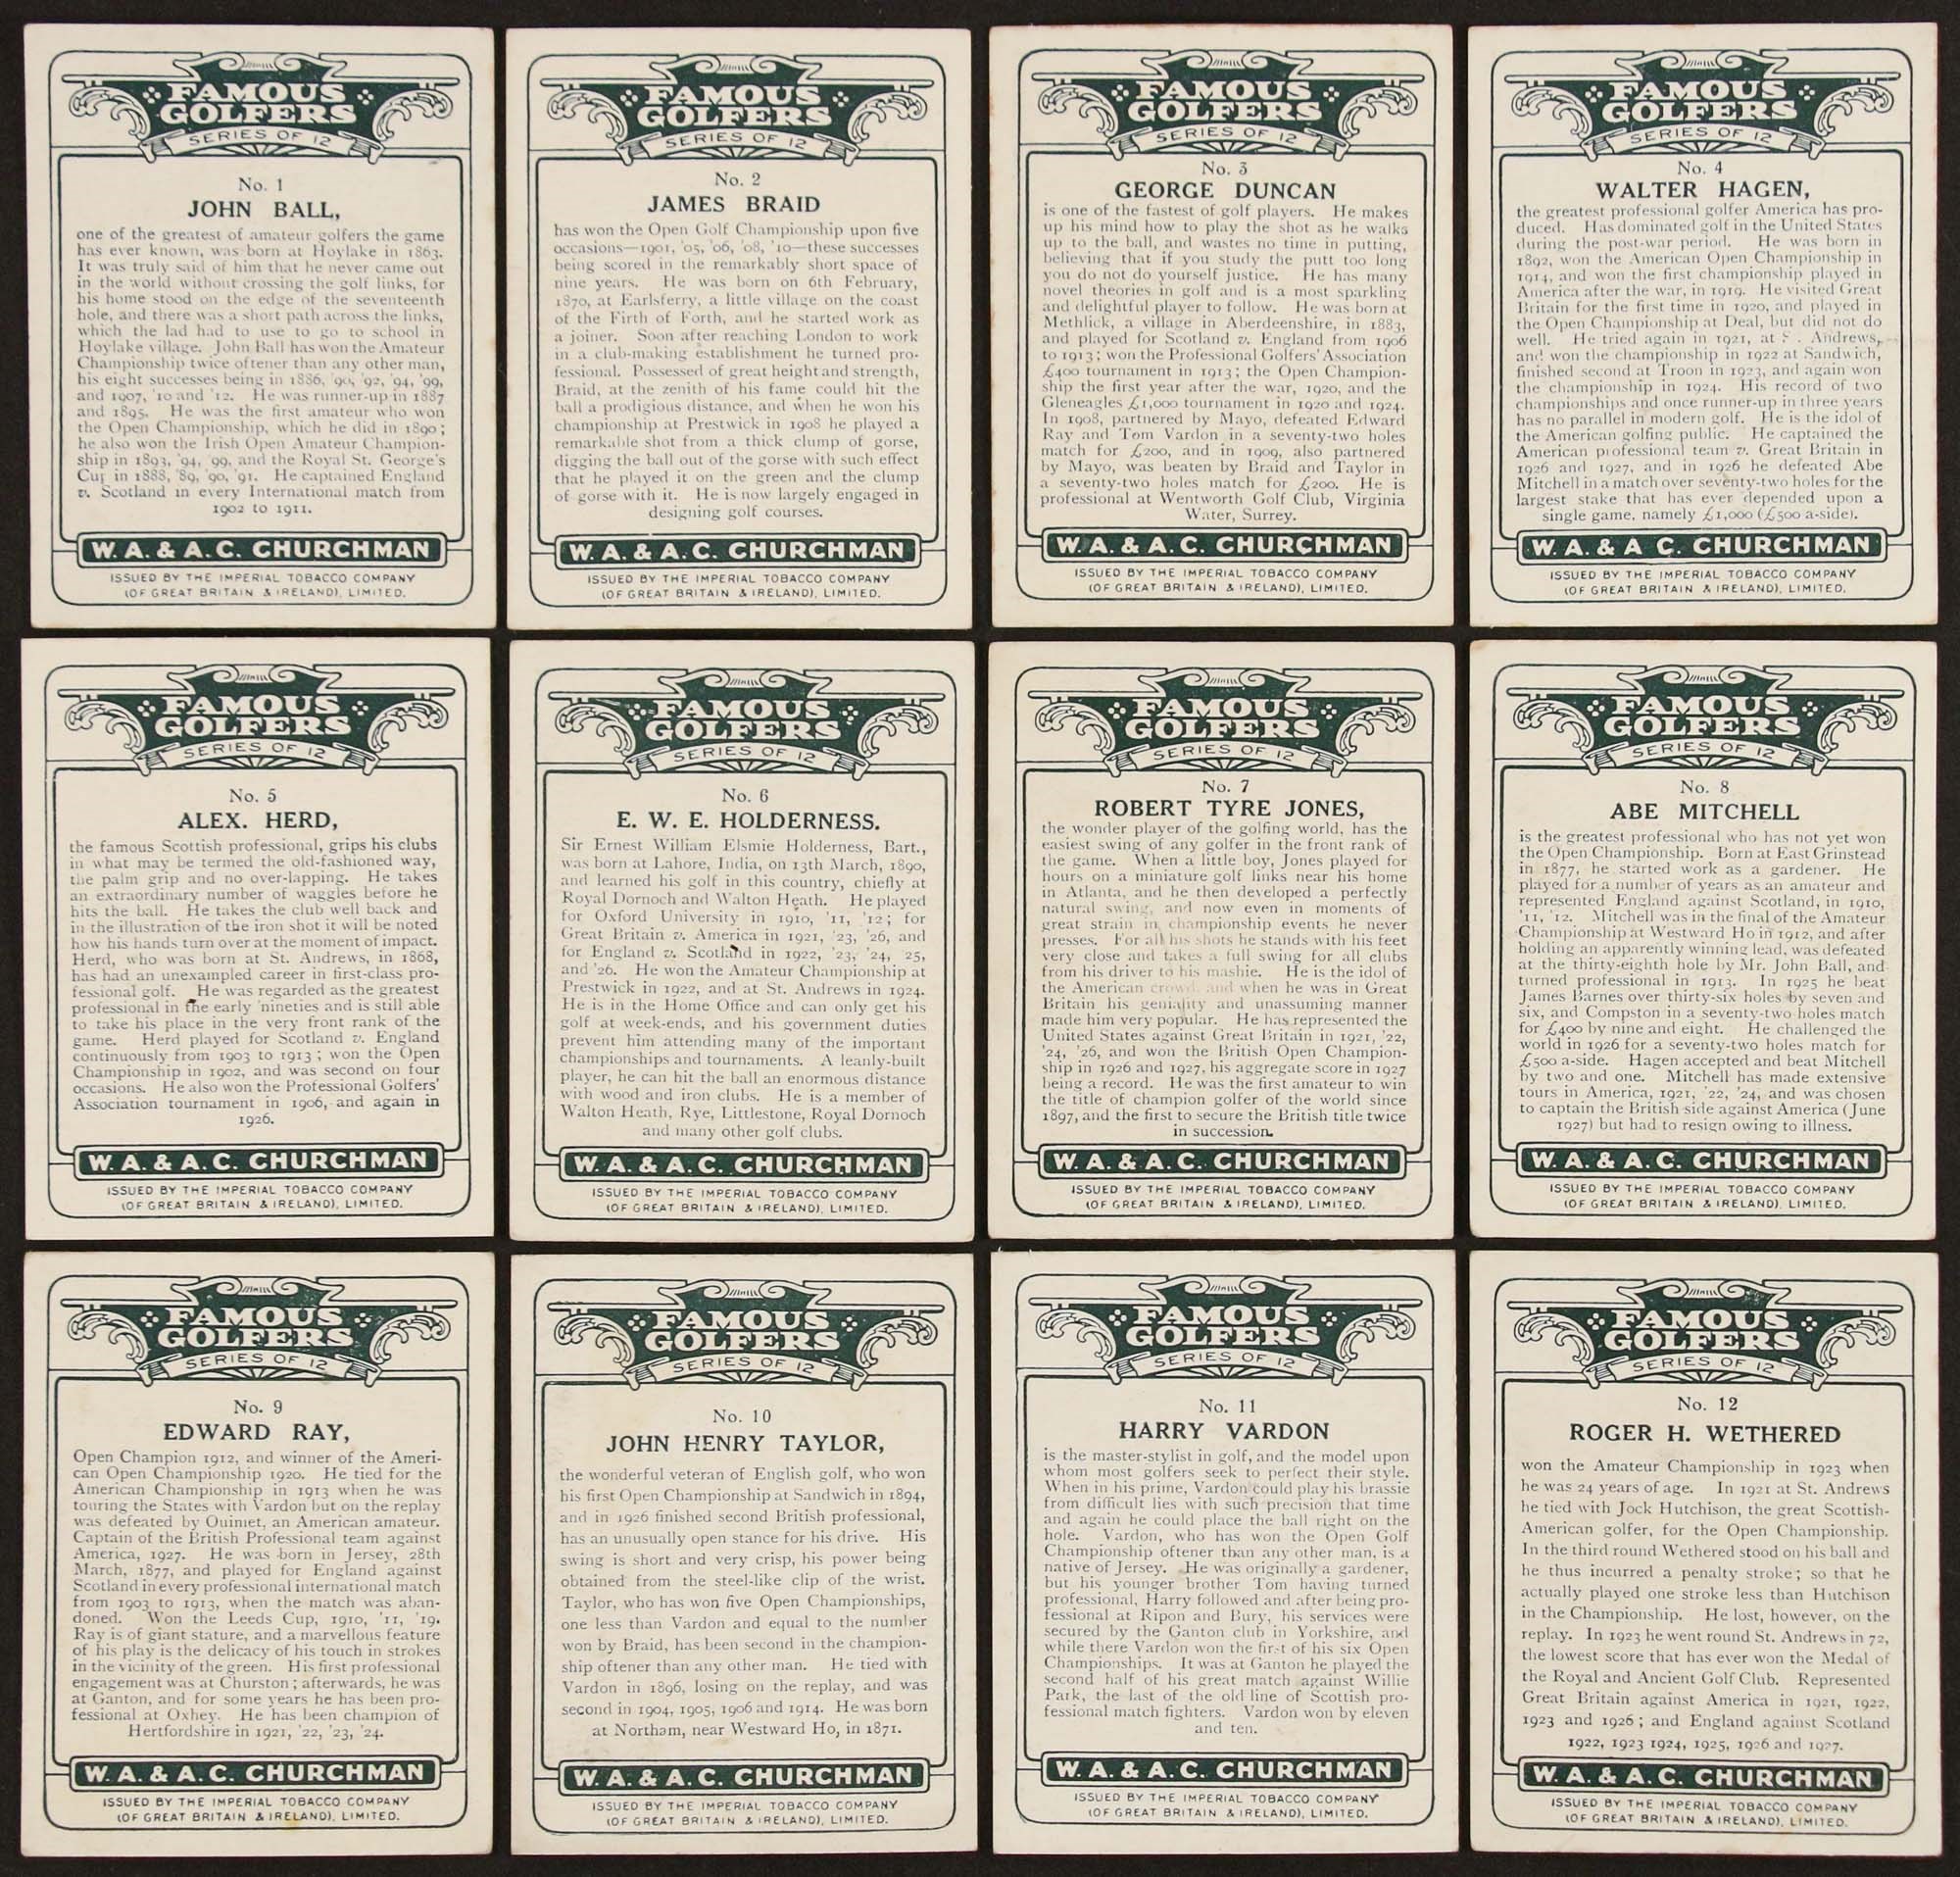 FAMOUS
GOLFERS
SERIES OF 12
No. 1
JOHN BALL,
one of the greatest of amateur golfers the game
has ever known, was born at Hoylake in 1863.
It was truly said of him that he never came out
in the world without crossing the golf links, for
his home stood on the edge of the seventeenth
hole, and there was a short path across the links,
which the lad had to use to go to school in
Hoylake village. John Ball has won the Amateur
Championship twice oftener than any other man,
his eight successes being in 1886, '90, '92, '94, '99,
and 1907, '10 and '12. He was runner-up in 1887
and 1895. He was the first amateur who won
the Open Championship, which he did in 1890;
he also won the Irish Open Amateur Champion-
ship in 1893, '94, '99, and the Royal St. George's
Cup in 1888, '89, '90, '91. He captained England
v. Scotland in every International match from
1902 to 1911.
W. A. & A. C. CHURCHMAN
ISSUED BY THE IMPERIAL TOBACCO COMPANY
(OF GREAT BRITAIN & IRELAND), LIMITED.
FAMOUS
GOLFERS
SERIES OF 12
No. 2
JAMES BRAID
has won the Open Golf Championship upon five
occasions—1901, '05, '06, '08, '10—these successes
being scored in the remarkably short space of
nine years. He was born on 6th February,
1870, at Earlsferry, a little village on the coast
of the Firth of Forth, and he started work as
a joiner. Soon after reaching London to work
in a club-making establishment he turned pro-
fessional. Possessed of great height and strength,
Braid, at the zenith of his fame could hit the
ball a prodigious distance, and when he won his
championship at Prestwick in 1908 he played a
remarkable shot from a thick clump of gorse,
digging the ball out of the gorse with such effect
that he played it on the green and the clump
of gorse with it. He is now largely engaged in
designing golf courses.
W. A. & A. C. CHURCHMAN
ISSUED BY THE IMPERIAL TOBACCO COMPANY
(OF GREAT BRITAIN & IRELAND), LIMITED.
FAMOUS
GOLFERS
SERIES OF 12
No. 3
GEORGE DUNCAN
is one of the fastest of golf players. He makes
up his mind how to play the shot as he walks
up to the ball, and wastes no time in putting,
believing that if you study the putt too long
you do not do yourself justice. He has many
novel theories in golf and is a most sparkling
and delightful player to follow. He was born at
Methlick, a village in Aberdeenshire, in 1883,
and played for Scotland v. England from 1906
to 1913; won the Professional Golfers' Association
£400 tournament in 1913; the Open Champion-
ship the first year after the war, 1920, and the
Gleneagles £1,000 tournament in 1920 and 1924.
In 1908, partnered by Mayo, defeated Edward
Ray and Tom Vardon in a seventy-two holes
match for £200, and in 1909, also partnered
by Mayo, was beaten by Braid and Taylor in
a seventy-two holes match for £200. He is
professional at Wentworth Golf Club, Virginia
Water, Surrey.
W. A. & A. C. CHURCHMAN
ISSUED BY THE IMPERIAL TOBACCO COMPANY
(OF GREAT BRITAIN & IRELAND), LIMITED.
FAMOUS
GOLFERS
SERIES OF 12
No. 4
WALTER HAGEN,
the greatest professional golfer America has pro-
duced. Has dominated golf in the United States
during the post-war period. He was born in
1892, won the American Open Championship in
1914, and won the first championship played in
America after the war, in 1919. He visited Great
Britain for the first time in 1920, and played in
the Open Championship at Deal, but did not do
well. He tried again in 1921, at S . Andrews,
and won the championship in 1922 at Sandwich,
finished second at Troon in 1923, and again won
the championship in 1924. His record of two
championships and once runner-up in three years
has no parallel in modern golf. He is the idol of
the American golfing public. He captained the
American professional team v. Great Britain in
1926 and 1927, and in 1926 he defeated Abe
Mitchell in a match over seventy-two holes for the
largest stake that has ever depended upon a
single game, namely £1,000 (£500 a-side).
W. A. & A C. CHURCHMAN
ISSUED BY THE IMPERIAL TOBACCO COMPANY
(OF GREAT BRITAIN & IRELAND), LIMITED.
FAMOUS
GOLFERS
SERIES OF 12
No. 5
ALEX. HERD,
the famous Scottish professional, grips his clubs
in what may be termed the old-fashioned way,
the palm grip and no over-lapping. He takes
an extraordinary number of waggles before he
hits the ball. He takes the club well back and
in the illustration of the iron shot it will be noted
how his hands turn over at the moment of impact.
Herd, who was born at St. Andrews, in 1868,
has had an unexampled career in first-class pro-
fessional golf. He was regarded as the greatest
professional in the early 'nineties and is still able
to take his place in the very front rank of the
game. Herd played for Scotland v. England
continuously from 1903 to 1913; won the Open
Championship in 1902, and was second on four
occasions. He also won the Professional Golfers'
Association tournament in 1906, and again in
1926.
W. A. & A. C. CHURCHMAN
ISSUED BY THE IMPERIAL TOBACCO COMPANY
(OF GREAT BRITAIN & IRELAND), LIMITED.
FAMOUS
GOLFERS
SERIES OF 12
No. 6
E. W. E. HOLDERNESS.
Sir Ernest William Elsmie Holderness, Bart.,
was born at Lahore, India, on 13th March, 1890,
and learned his golf in this country, chiefly at
Royal Dornoch and Walton Heath. He played
for Oxford University in 1910, '11, '12; for
Great Britain v. America in 1921, '23, '26, and
for England v. Scotland in 1922, '23, '24, '25,
and '26. He won the Amateur Championship at
Prestwick in 1922, and at St. Andrews in 1924.
He is in the Home Office and can only get his
golf at week-ends, and his government duties
prevent him attending many of the important
championships and tournaments. A leanly-built
player, he can hit the ball an enormous distance
with wood and iron clubs. He is a member of
Walton Heath, Rye, Littlestone, Royal Dornoch
and many other golf clubs.
W. A. & A. C. CHURCHMAN
ISSUED BY THE IMPERIAL TOBACCO COMPANY
(OF GREAT BRITAIN & IRELAND), LIMITED.
FAMOUS
GOLFERS
SERIES OF 12
No. 7
ROBERT TYRE JONES,
the wonder player of the golfing world, has the
easiest swing of any golfer in the front rank of
the game. When a little boy, Jones played for
hours on a miniature golf links near his home
in Atlanta, and he then developed a perfectly
natural swing, and now even in moments of
great strain in championship events he never
presses. For all his shots he stands with his feet
very close and takes a full swing for all clubs
from his driver to his mashie. He is the idol of
the American crowd, and when he was in Great
Britain his geniality and unassuming manner
made him very popular. He has represented the
United States against Great Britain in 1921, '22,
'24, '26, and won the British Open Champion-
ship in 1926 and 1927, his aggregate score in 1927
being a record. He was the first amateur to win
the title of champion golfer of the world since
1897, and the first to secure the British title twice
in succession.
W. A. & A. C. CHURCHMAN
ISSUED BY THE IMPERIAL TOBACCO COMPANY
(OF GREAT BRITAIN & IRELAND), LIMITED.
FAMOUS
GOLFERS
SERIES OF 12
No. 8
ABE MITCHELL
is the greatest professional who has not yet won
the Open Championship. Born at East Grinstead
in 1877, he started work as a gardener. He
played for a number of years as an amateur and
represented England against Scotland, in 1910,
'11, '12. Mitchell was in the final of the Amateur
Championship at Westward Ho in 1912, and after
holding an apparently winning lead, was defeated
at the thirty-eighth hole by Mr. John Ball, and
turned professional in 1913. In 1925 he beat
James Barnes over thirty-six holes by seven and
six, and Compston in a seventy-two holes match
for £400 by nine and eight. He challenged the
world in 1926 for a seventy-two holes match for
£500 a-side. Hagen accepted and beat Mitchell
by two and one. Mitchell has made extensive
tours in America, 1921, '22, '24, and was chosen
to captain the British side against America (June
1927) but had to resign owing to illness.
W. A. & A. C. CHURCHMAN
ISSUED BY THE IMPERIAL TOBACCO COMPANY
(OF GREAT BRITAIN & IRELAND), LIMITED.
FAMOUS
GOLFERS
SERIES OF 12
No. 9
EDWARD RAY,
Open Champion 1912, and winner of the Ameri-
can Open Championship 1920. He tied for the
American Championship in 1913 when he was
touring the States with Vardon but on the replay
was defeated by Ouimet, an American amateur.
Captain of the British Professional team against
America, 1927. He was born in Jersey, 28th
March, 1877, and played for England against
Scotland in every professional international match
from 1903 to 1913, when the match was aban-
doned. Won the Leeds Cup, 1910, '11, '19.
Ray is of giant stature, and a marvellous feature
of his play is the delicacy of his touch in strokes
in the vicinity of the green. His first professional
engagement was at Churston; afterwards, he was
at Ganton, and for some years he has been pro-
fessional at Oxhey. He has been champion of
Hertfordshire in 1921, '22, '23, '24.
W. A. & A. C. CHURCHMAN
ISSUED BY THE IMPERIAL TOBACCO COMPANY
(OF GREAT BRITAIN & IRELAND), LIMITED.
FAMOUS
GOLFERS
SERIES OF 12
No. 10
JOHN HENRY TAYLOR,
the wonderful veteran of English golf, who won
his first Open Championship at Sandwich in 1894,
and in 1926 finished second British professional,
has an unusually open stance for his drive. His
swing is short and very crisp, his power being
obtained from the steel-like clip of the wrist.
Taylor, who has won five Open Championships,
one less than Vardon and equal to the number
won by Braid, has been second in the champion-
ship oftener than any other man. He tied with
Vardon in 1896, losing on the replay, and was
second in 1904, 1905, 1906 and 1914. He was born
at Northam, near Westward Ho, in 1871.
W. A. & A. C. CHURCHMAN
ISSUED BY THE IMPERIAL TOBACCO COMPANY
(OF GREAT BRITAIN & IRELAND), LIMITED.
FAMOUS
GOLFERS
SERIES OF 12
No. 11
HARRY VARDON
is the master-stylist in golf, and the model upon
whom most golfers seek to perfect their style.
When in his prime, Vardon could play his brassie
from difficult lies with such precision that time
and again he could place the ball right on the
hole. Vardon, who has won the Open Golf
Championship oftener than any other man, is a
native of Jersey. He was originally a gardener,
but his younger brother Tom having turned
professional, Harry followed and after being pro-
fessional at Ripon and Bury, his services were
secured by the Ganton club in Yorkshire, and
while there Vardon won the first of his six Open
Championships. It was at Ganton he played the
second half of his great match against Willie
Park, the last of the old line of Scottish pro-
fessional match fighters. Vardon won by eleven
and ten.
W. A. & A. C. CHURCHMAN
ISSUED BY THE IMPERIAL TOBACCO COMPANY
(OF GREAT BRITAIN & IRELAND), LIMITED.
FAMOUS
GOLFERS
SERIES OF 12
No. 12
ROGER H. WETHERED
won the Amateur Championship in 1923 when
he was 24 years of age. In 1921 at St. Andrews
he tied with Jock Hutchison, the great Scottish-
American golfer, for the Open Championship.
In the third round Wethered stood on his ball and
he thus incurred a penalty stroke; so that he
actually played one stroke less than Hutchison
in the Championship. He lost, however, on the
replay. In 1923 he went round St. Andrews in 72,
the lowest score that has ever won the Medal of
the Royal and Ancient Golf Club. Represented
Great Britain against America in 1921, 1922,
1923 and 1926; and England against Scotland
1922, 1923 1924, 1925, 1926 and 1927.
W. A. & A. C. CHURCHMAN
ISSUED BY THE IMPERIAL TOBACCO COMPANY
(OF GREAT BRITAIN & IRELAND), LIMITED.